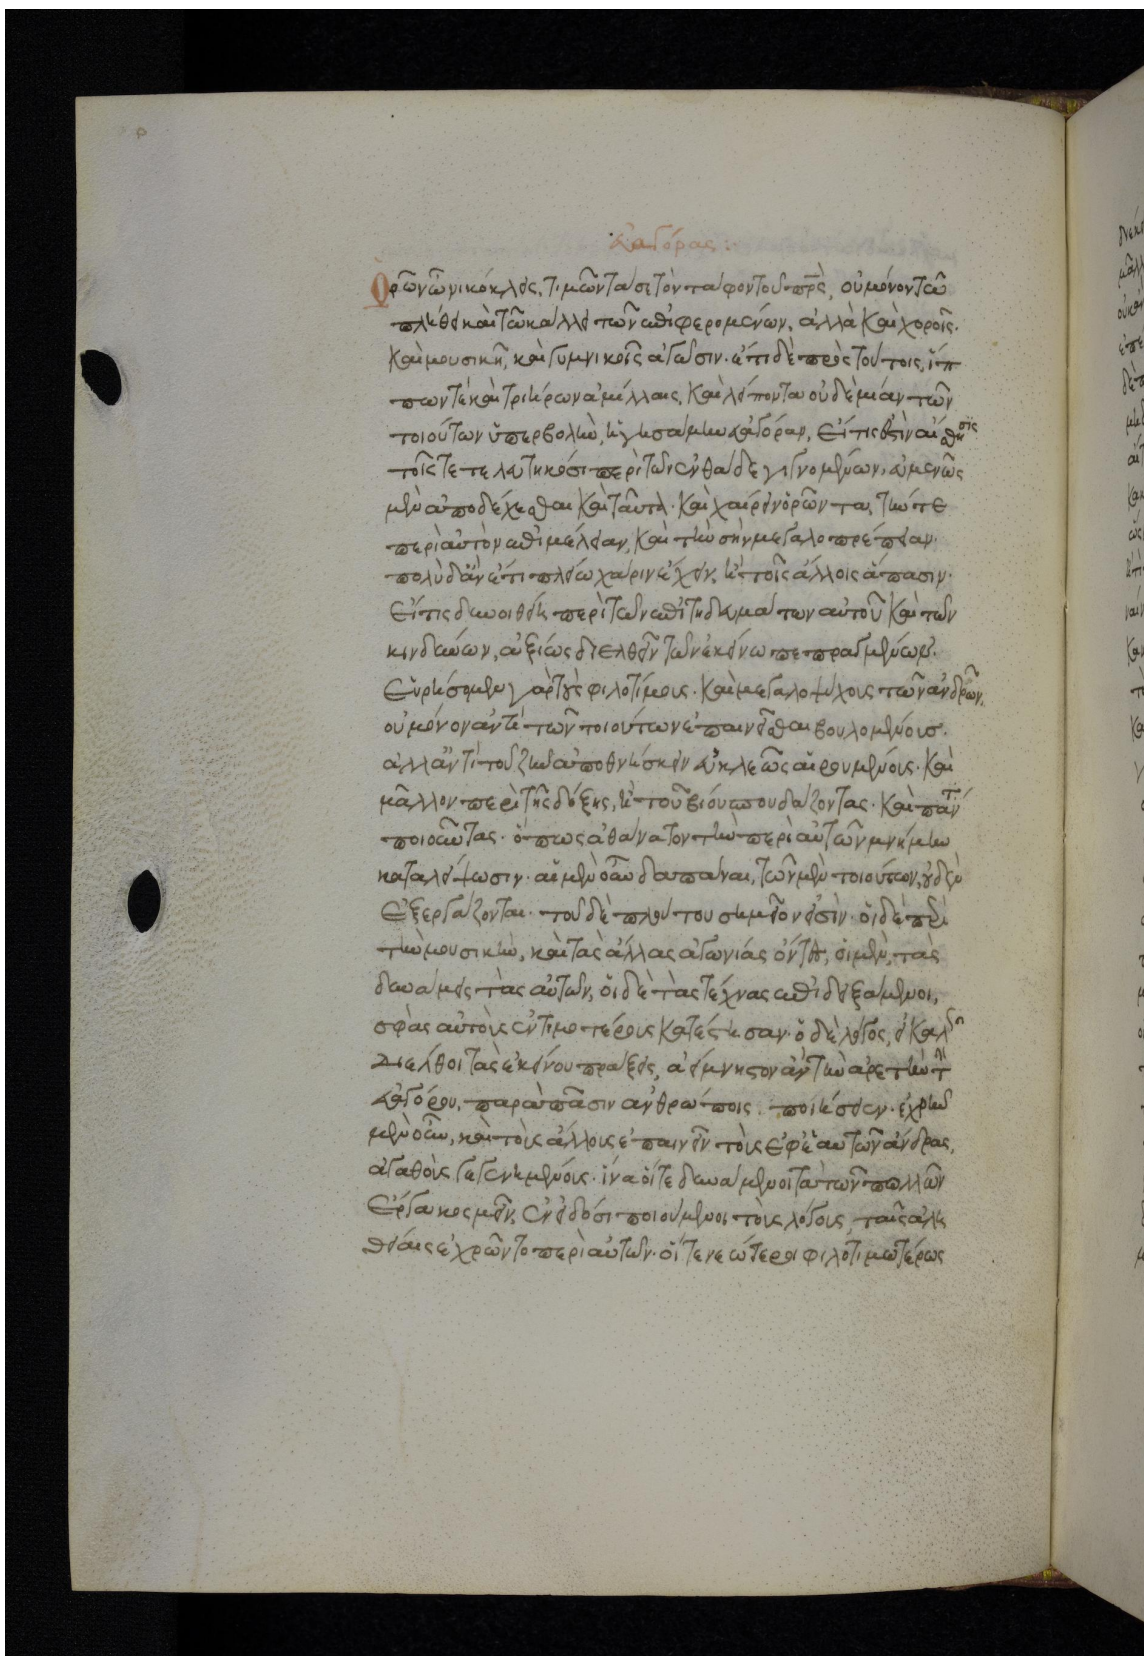 Εὐαγόρας :
Ὁρῶν ὦ νικόκλεις, τιμῶντα σὲ τὸν τάφον τοῦ πρς, οὐ μόνον τῶ
πλήθει καὶ τῶ κάλλει τῶν ἐπιφερομένων, ἀλλὰ καὶ χοροῖς.
καὶ μουσικῆ, καὶ γυμνικοῖς ἀγῶσιν. ἔτι δὲ πρὸς τούτοις, ἵπ
πων τὲ καὶ τριήρων ἁμίλλαις, καὶ λείποντα οὐδὲ μίαν τῶν
τοιούτων ὑπερβολὴν, ἡγησάμην εὐαγόραν, εἴ τις ἐστὶν αἴσθησις
τοῖς τετελευτηκόσι περὶ τῶν ἐνθάδε γιγνομένων, εὐμενῶς
μὲν ἀποδέχεσθαι καὶ ταῦτα. καὶ χαίρειν ὁρῶντα, τήν τε
περὶ αὐτὸν ἐπιμέλειαν, καὶ τὴν σὴν μεγαλοπρέπειαν.
πολὺ δ' ἂν ἔτι πλείω χάριν ἔχειν, ἢ τοῖς ἄλλοις ἅπασιν.
εἴ τις δυνηθείη περὶ τῶν ἐπιτηδευμάτων αὐτοῦ καὶ τῶν
κινδύνων, ἀξίως διελθεῖν τῶν ἐκείνω πεπραγμένων.
Εὑρήσομεν γὰρ τοὺς φιλοτίμους. καὶ μεγαλοψύχους τῶν ἀνδρῶν,
οὐ μόνον ἀντὶ τῶν τοιούτων ἐπαινεῖσθαι βουλομένους.
ἀλλ' ἀντὶ τοῦ ζῆν ἀποθνήσκειν εὐκλεῶς αἱρουμένους. καὶ
μᾶλλον περὶ τῆς δόξης, ἢ τοῦ βίου σπουδάζοντας. καὶ πάντα
ποιοῦντας. ὅπως ἀθάνατον τὴν περὶ αὑτῶν μνήμην
καταλείψωσιν. αἱ μὲν οὖν δαπάναι, τῶν μὲν τοιούτων, οὐδὲν
ἐξεργάζονται. τοῦ δὲ πλούτου σημεῖον εἰσίν. οἱ δὲ περὶ
τὴν μουσικὴν, καὶ τὰς ἄλλας ἀγωνίας ὄντες, οἱ μὲν, τὰς
δυνάμεις τὰς αὑτῶν, οἱ δὲ τὰς τέχνας ἐπιδειξάμενοι,
σφᾶς αὐτοὺς ἐντιμοτέρους κατέστησαν. ὁ δὲ λόγος, εἰ καλῶς
διέλθοι τὰς ἐκείνου πράξεις, ἀείμνηστον ἂν τὴν ἀρετὴν τὴν
εὐαγόρου, παρὰ πᾶσιν ἀνθρώποις ποιήσειεν. ἐχρῆν
μὲν οὖν, καὶ τοὺς ἄλλους ἐπαινεῖν τοὺς ἐφ' ἑαυτῶν ἄνδρας,
ἀγαθοὺς γεγενημένους. ἵνα οἵ τε δυνάμενοι τὰ τῶν πολλῶν
ἔργα κοσμεῖν, ἐν εἰδόσι ποιούμενοι τοὺς λόγους, ταῖς ἀλη
θείαις ἐχρῶντο περὶ αὐτῶν. οἵ τε νεώτεροι φιλοτιμωτέρως